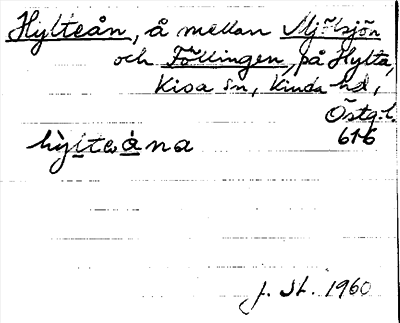 Hylteån, å mellan Mjölsjön
och Föllingen, på Hylta,
Kisa sn, Kinda hd,
Östg.l.
616
hỳlteȧna
J. St. 1960